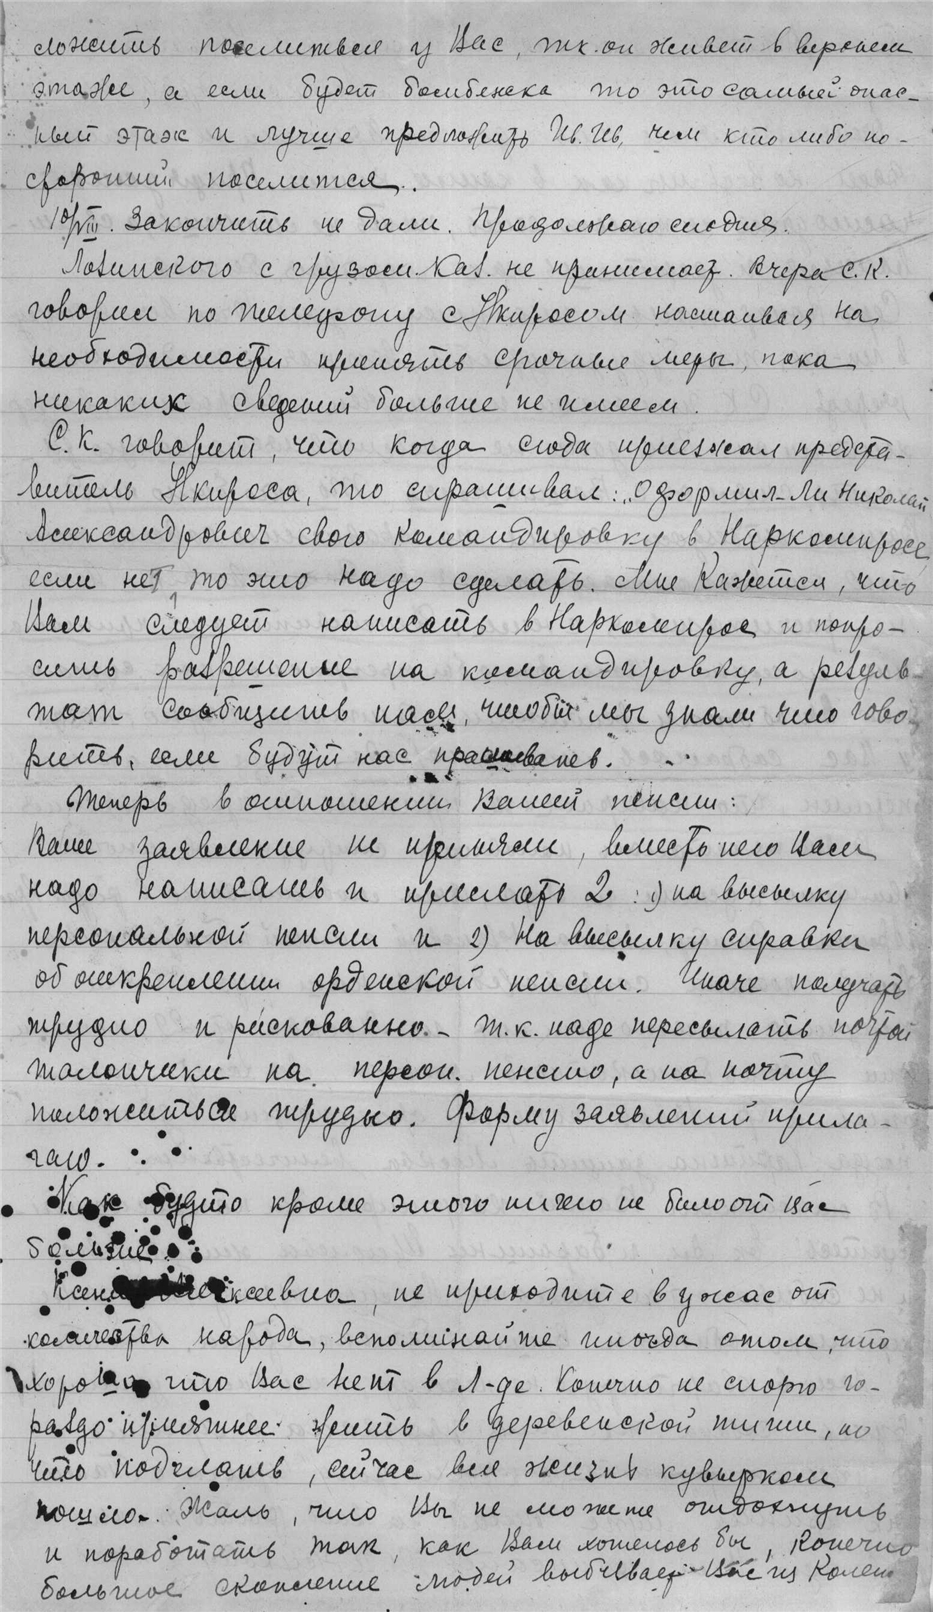 ложить поселиться у Вас, т.к. он живет в верхнем
этаже, а если будет бомбежка то это самый опас-
ный этаж и лучше предложить Ив. Ив, чем кто либо по-
сторонний поселится.
10/VIII. Закончить не дали. Продолжаю сегодня.
Лозинского с грузом Наз. не принимает. Вчера С.К.
говорил по телефону с Нкпросом настаивая на
необходимости принять срочные меры, пока
никаких сведений больше не имеем.
С.К. говорит, что когда сюда приезжал предста-
витель Нкпроса, то спрашивал: „Оформил-ли Николай
Александрович свою командировку в Наркомпросе,
если нет, то это надо сделать. Мне кажется, что
Вам следует написать в Наркомпрос и попро-
сить разрешение на командировку, а резуль-
тат сообщить нам, чтобы мы знали что гово-
рить, если будут нас спрашивать.
Теперь в отношении Вашей пенсии:
Ваше заявление не приняли, вместо него Вам
надо написать и прислать 2: 1) на высылку
персональной пенсии и 2) на высылку справки
об откреплении орденской пенсии. Иначе получать
трудно и рискованно - т.к. надо пересылать почтой
талончики на персон. пенсию, а на почту
положиться трудно. Форму заявлений прила-
гаю.
Как будто кроме этого ничего не было от Вас
больше.
Ксения Алексеевна, не приходите в ужас от
количества народа, вспоминайте иногда о том, что
хорошо что Вас нет в Л-де. Конечно не спорю го-
раздо приятнее жить в деревенской тиши, но
что поделать, сейчас вся жизнь кувырком
пошла. Жаль, что Вы не можете отдохнуть
и поработать так, как Вам хотелось бы, конечно
большое скопление людей выбивает Вас из колеи